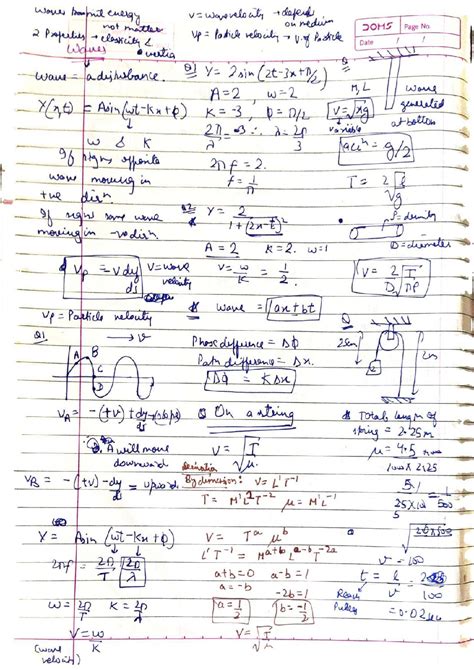 Waves transmit energy
not matter
2 Properties → elasticity &
inertia
Waves
v = wave velocity → depend
on medium
Vp = Particle velocity → V. of Particle
DOMS
Page No.
Date / /
Wave = a disturbance.
Y(x,t) = A sin(wt - kx + ϕ)
w & K
If signs opposite
wave moving in
+ve dirn.
If sign same wave
moving in -ve dirn
Vp = -v dy/dx
V = wave
velocity
Vp = Particle velocity
Q1
→ v
A B
C
D
VA = -(+v) + dy
A will move
downward
VB = -(+v) - dy/dx = upward
Y = A sin(wt - kx + ϕ)
2πf = 2π/T
2π/λ
w = 2π/T K = 2π/λ
v = w/K
(wave
velocity)
Q1 Y = 2 sin(2t - 3x + π/2)
A = 2, w = 2
K = -3, ϕ = π/2
2π/λ = 3 ∴ λ = 2π/3
2πf = 2.
f = 1/π
Q2 Y = 2/1+(2x-t)²
A = 2 K = 2. w = 1
v = w/K = 1/2.
wave = ax + bt
Phase difference = Δϕ
Path difference = Δx.
Δϕ = KΔx
On a string
V = √T/μ
derivation
By dimension: V = L¹T⁻¹
T = M¹L¹T⁻² μ = M¹L⁻¹
V = Tᵃ μᵇ
L¹T⁻¹ = Mᵃ⁺ᵇ Lᵃ⁻ᵇ T⁻²ᵃ
a+b = 0 a-b = 1
a = -b
-2b = 1
a = 1/2 b = -1/2
V = √T/μ
Q
M, L
V = √xg
variable
wave
generated
at bottom
accn = g/2
T = 2√L/g
ρ = density
D = diameter
V = 2/D √T/πρ
Q
25cm
2m
Total length of
string = 2.25m
μ = 4.5
1000 × 2.25
v = 100
t =
100
= 0.02